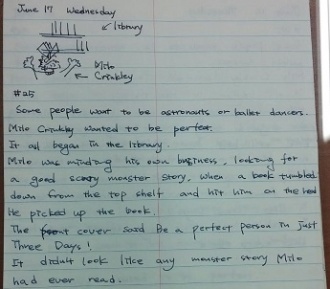 June 17 Wednesday
library
Milo
Crinkley
#25
Some people want to be astronauts or ballet dancers.
Milo Crinkley wanted to be perfect.
It all began in the library.
Milo was minding his own business, looking for
a good scary monster story, when a book tumbled
down from the top shelf and hit him on the head
He picked up the book.
The front cover said Be a perfect person in just
Three Days!
It didn't look like any monster story Milo
had ever read.